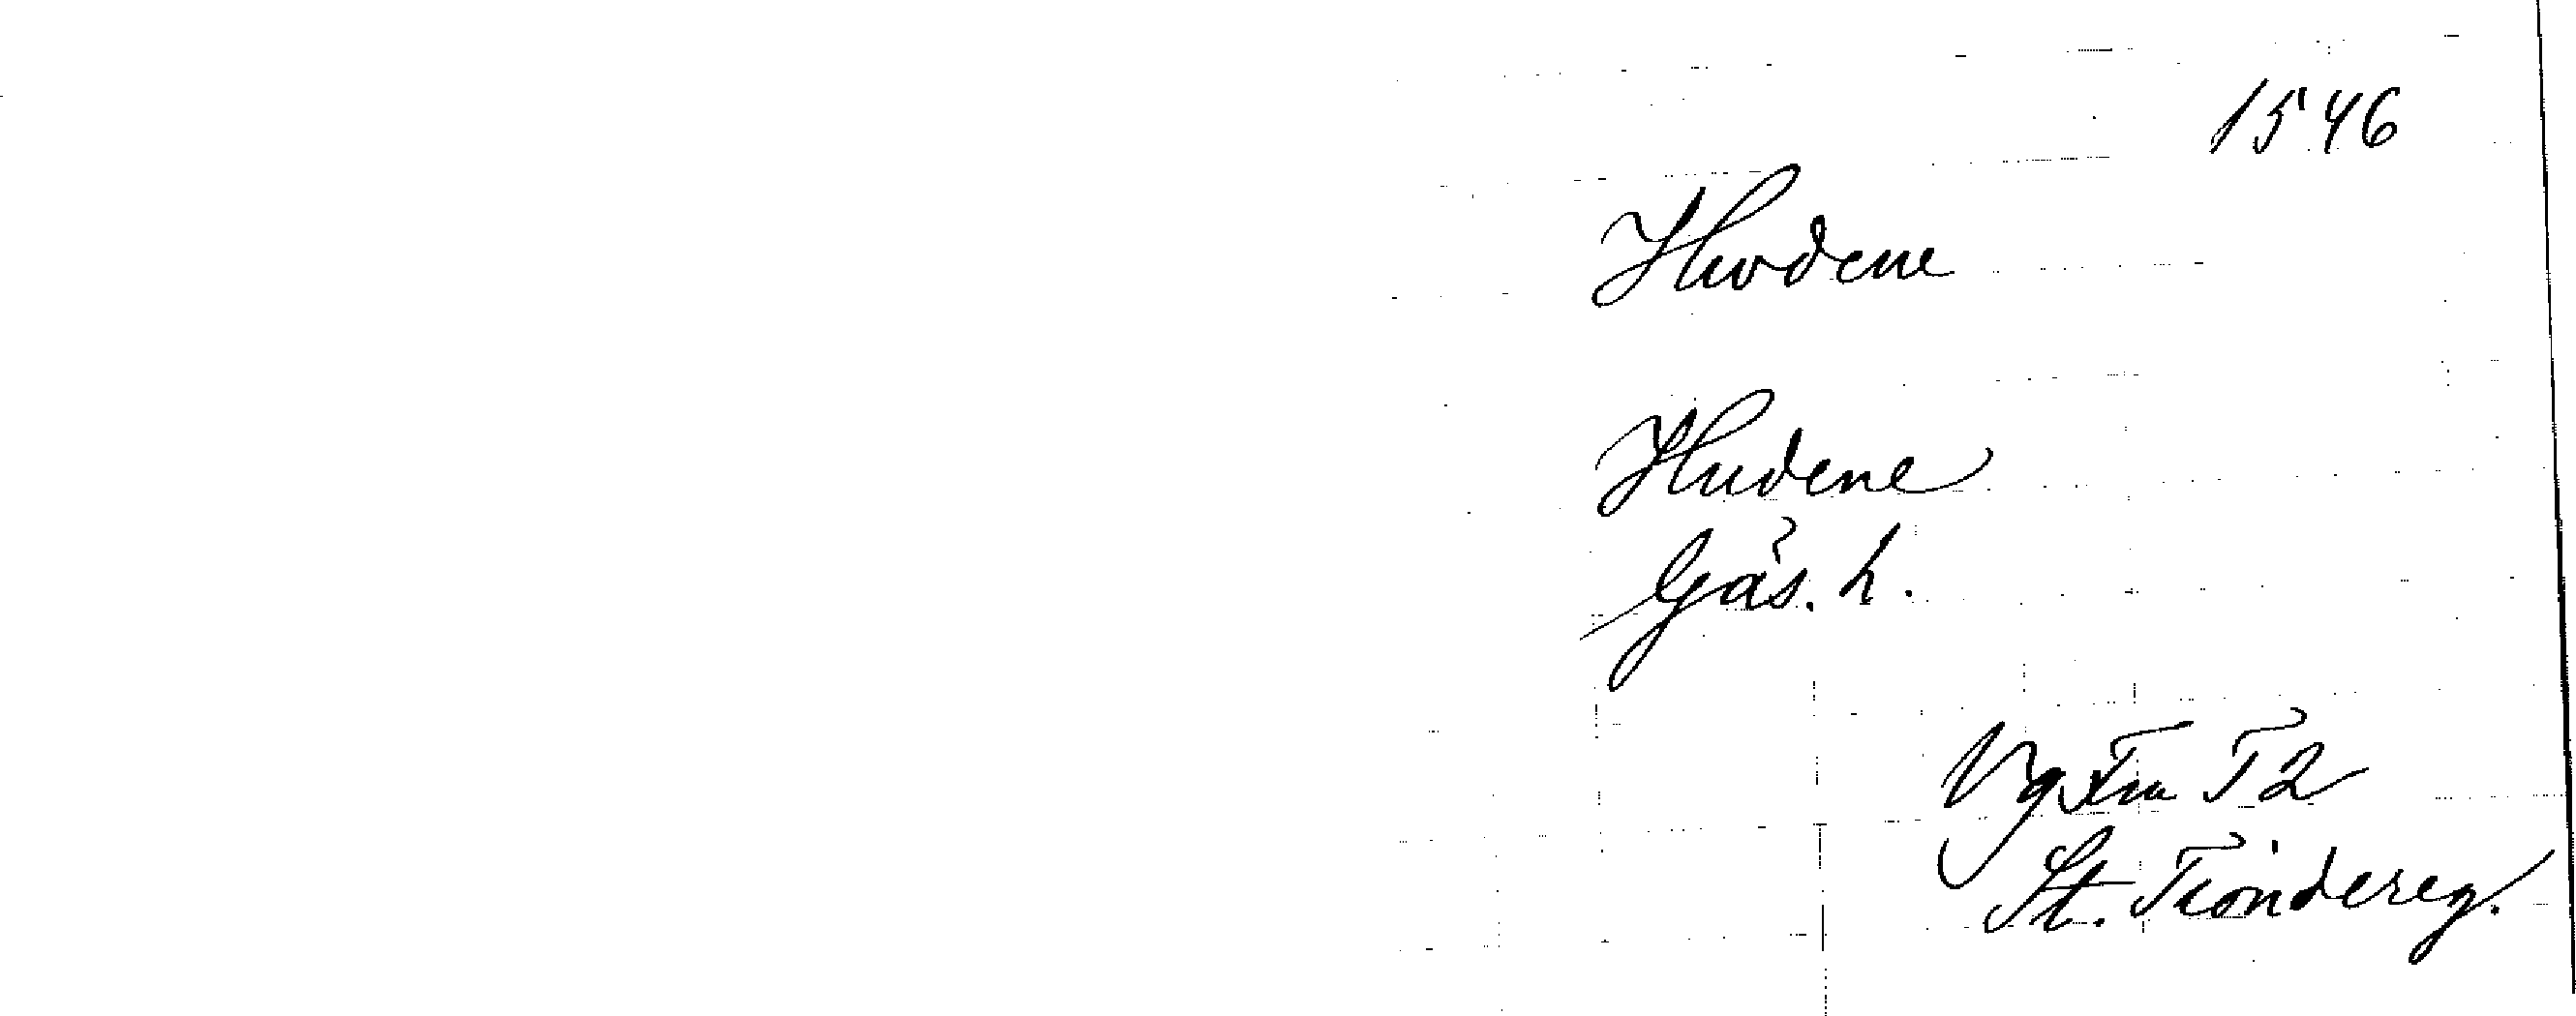 1546
Hwdene
Hudene
Gäs. h.
Vg Fru T2
St. Tiondereg.